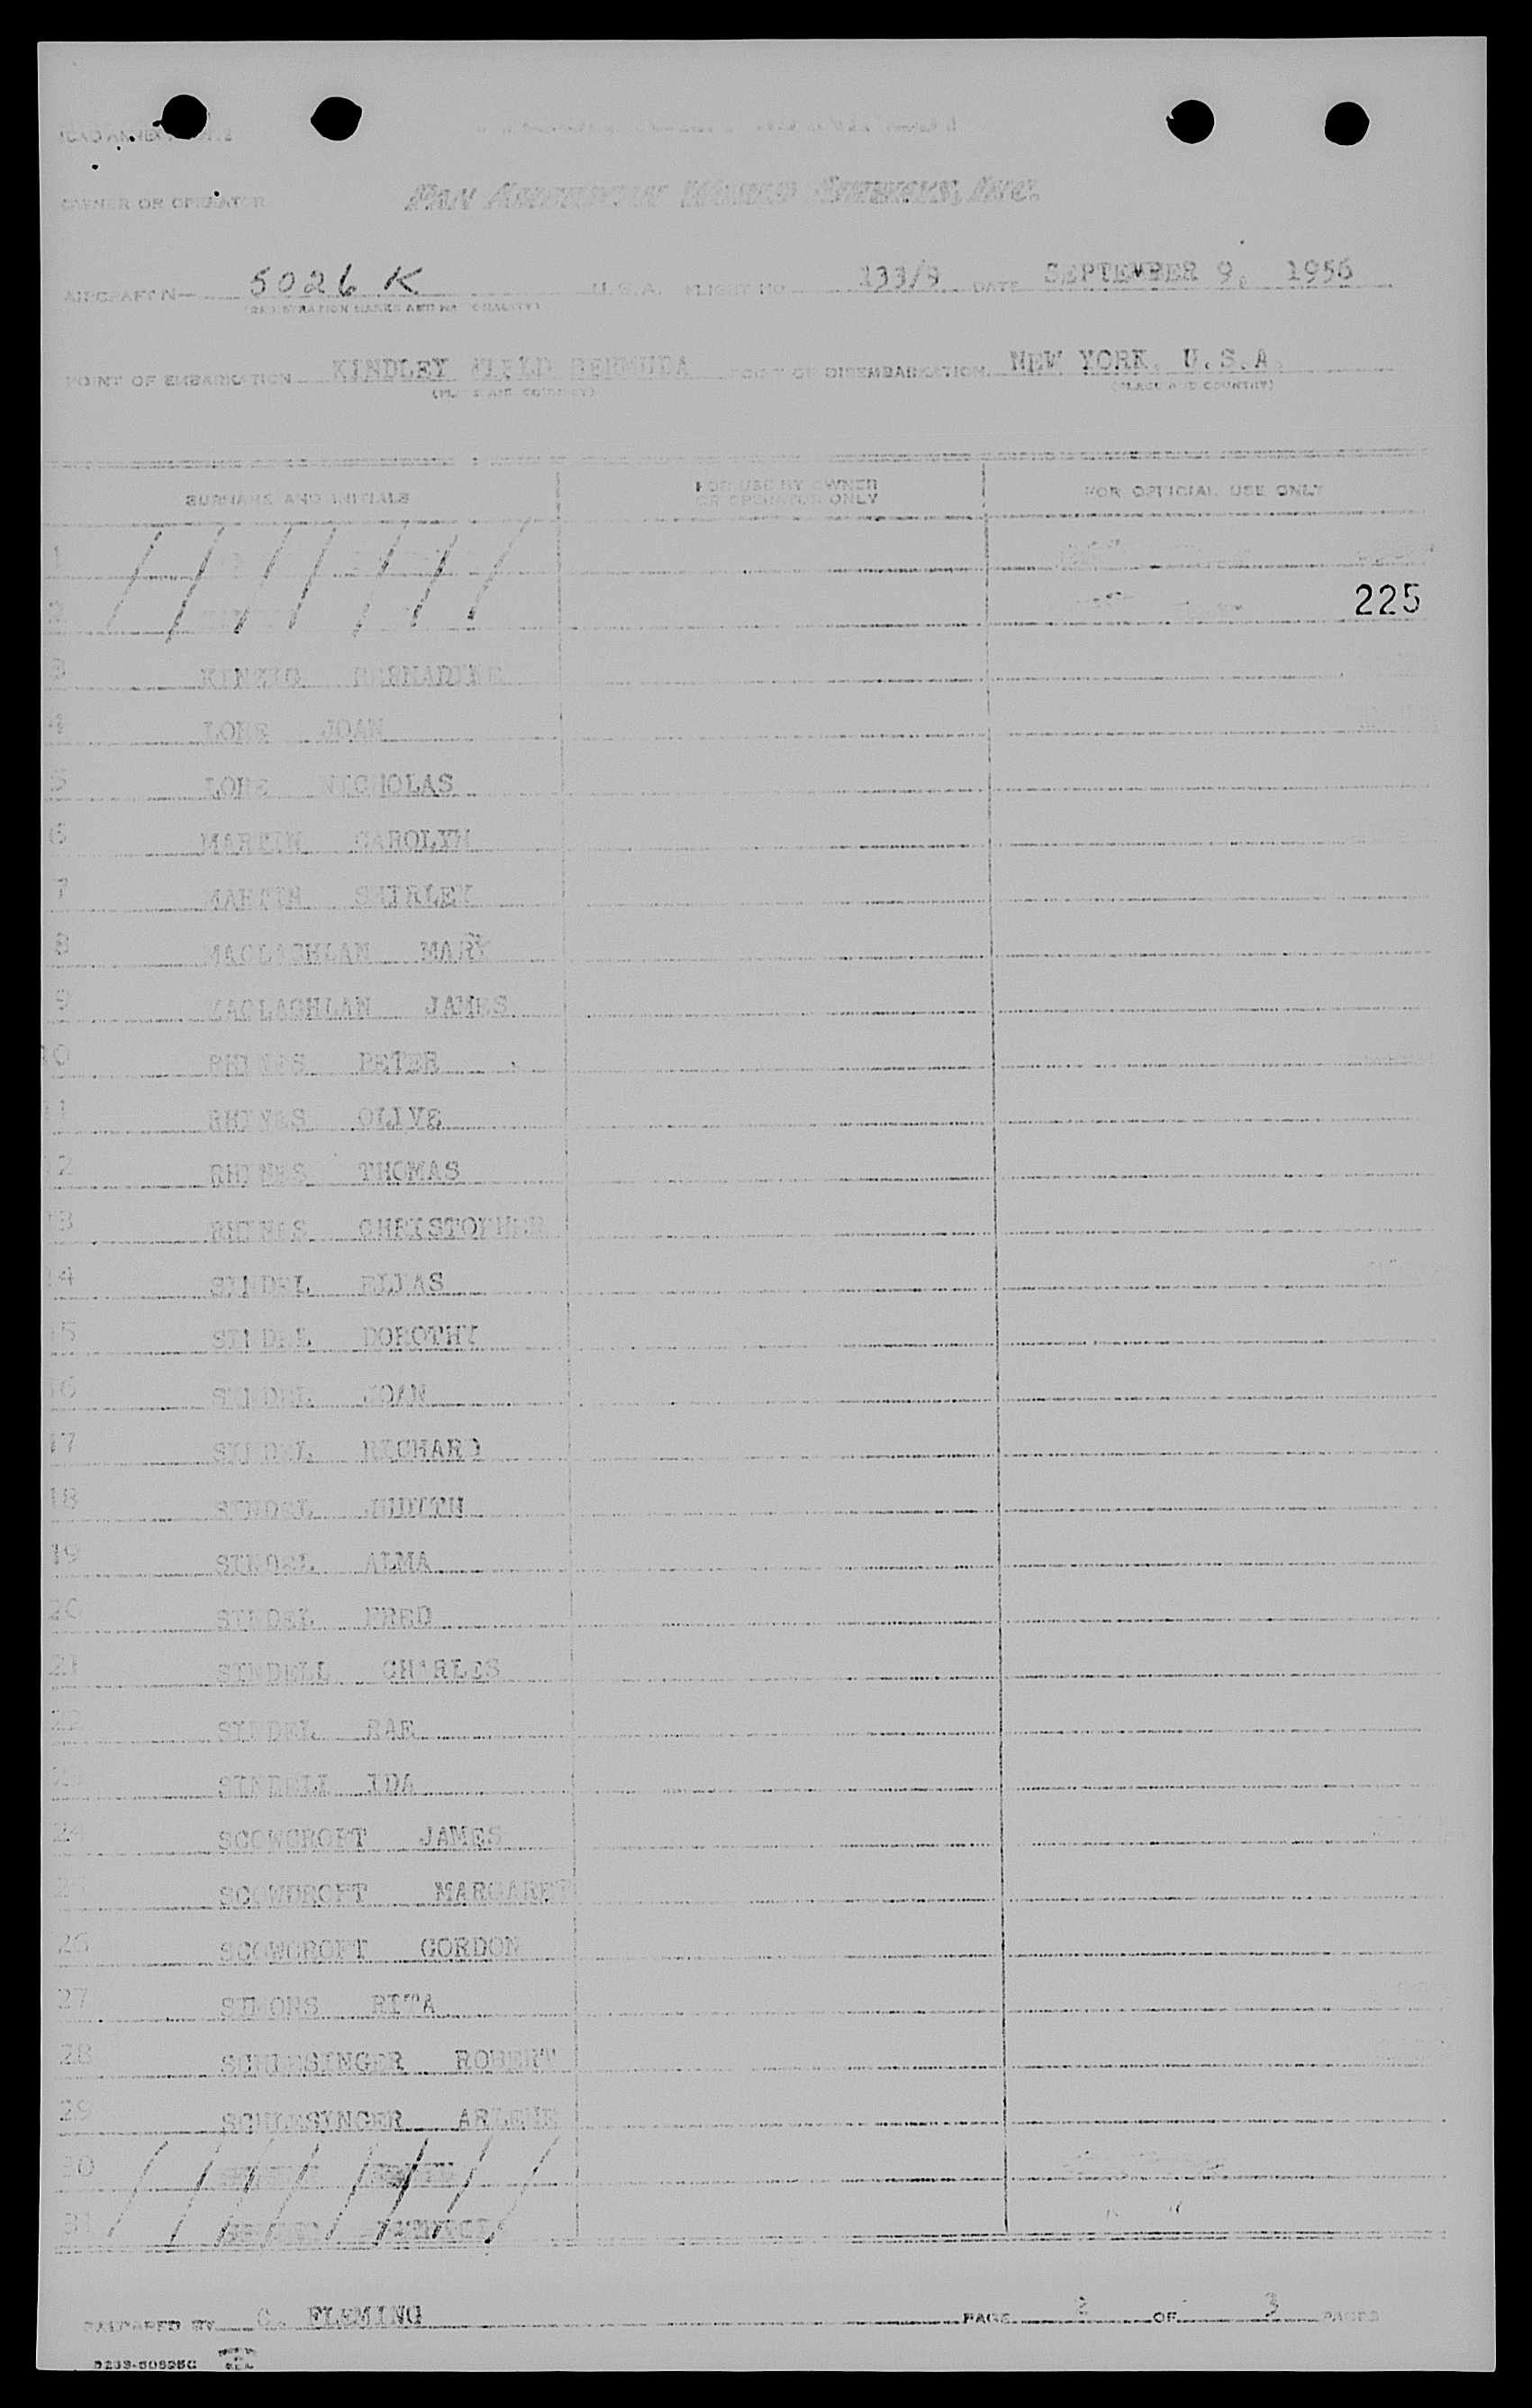 OWNER OR OPERATOR PAN AMERICAN WORLD AIRWAYS, INC.
AIRCRAFT N— 5026 K U.S.A. FLIGHT NO 133/9 DATE SEPTEMBER 9, 1956
(REGISTRATION MARKS AND NATIONALITY)
POINT OF EMBARKATION KINDLEY FIELD BERMUDA POINT OF DISEMBARKATION NEW YORK, U.S.A.
(PLACE AND COUNTRY) (PLACE AND COUNTRY)
SURNAME AND INITIALS FOR USE BY OWNER OR OPERATOR ONLY FOR OFFICIAL USE ONLY
1
2 225
3
4 JOAN
5 NICHOLAS
6 MARTIN CAROLYN
7 MARTIN SHIRLEY
8 MACLACHLAN MARY
9 MACLACHLAN JAMES
10 RHINES PETER
11 RHINES OLIVE
12 RHINES THOMAS
13 RHINES CHRISTOPHER
14 SINDEL ELIAS
15 SINDEL DOROTHY
16 SINDEL JOAN
17 SINDEL RICHARD
18 SINDEL JUDITH
19 SINDEL ALMA
20 SINDEL FRED
21 SINDELL CHARLES
22 SINDEL RAE
23 SINDELL IDA
24 SCOWCROFT JAMES
25 SCOWCROFT MARGARET
26 SCOWCROFT GORDON
27 SIMONS RITA
28 SCHLESINGER ROBERT
29 SCHLESINGER ARLENE
30
31
PREPARED BY C. FLEMING PAGE 2 OF 3 PAGES